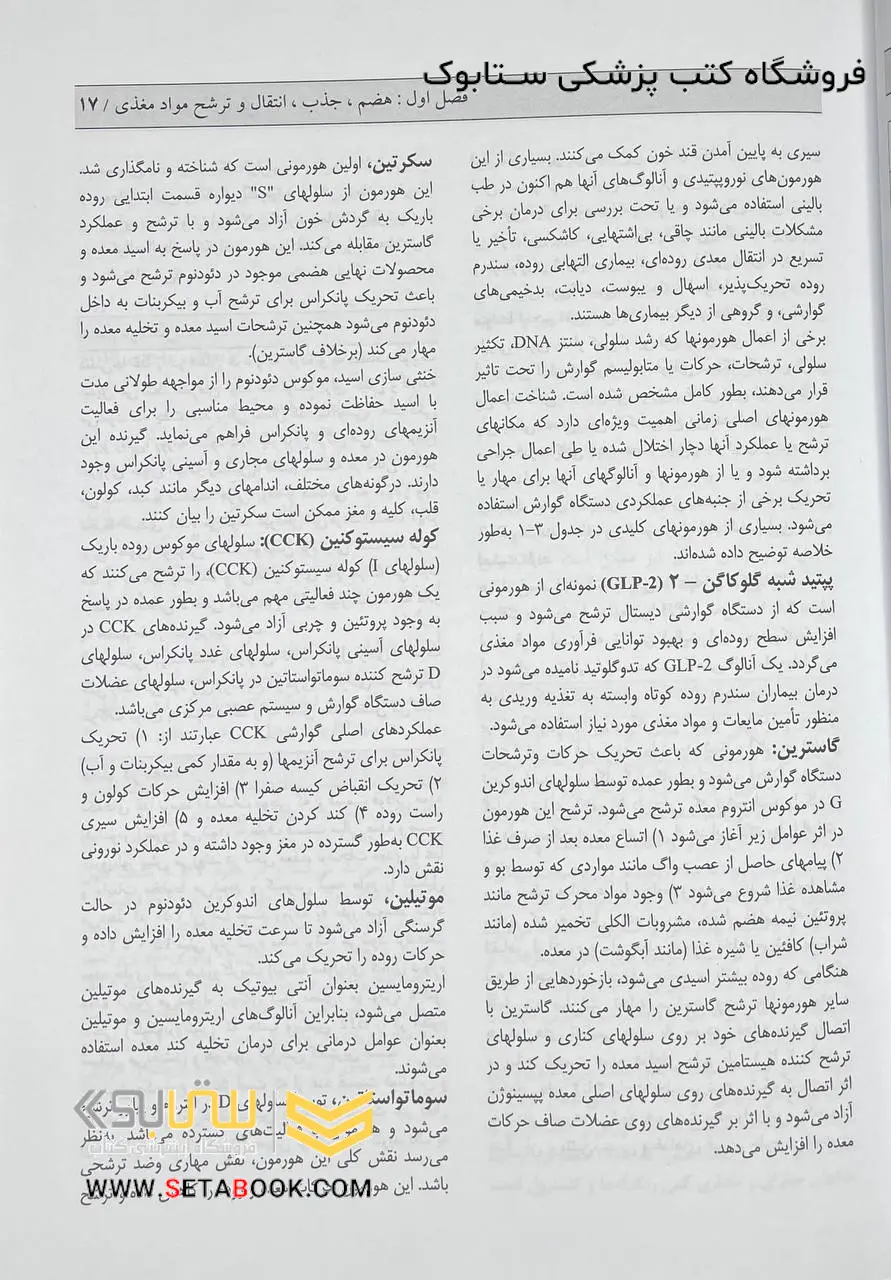 فروشگاه کتب پزشکی ستابوک
فصل اول : هضم ، جذب ، انتقال و ترشح مواد مغذی / ۱۷
سیری به پایین آمدن قند خون کمک می‌کنند. بسیاری از این
هورمون‌های نوروپپتیدی و آنالوگ‌های آنها هم اکنون در طب
بالینی استفاده می‌شود و یا تحت بررسی برای درمان برخی
مشکلات بالینی مانند چاقی، بی‌اشتهایی، کاشکسی، تأخیر یا
تسریع در انتقال معدی روده‌ای، بیماری التهابی روده، سندرم
روده تحریک‌پذیر، اسهال و یبوست، دیابت، بدخیمی‌های
گوارشی، و گروهی از دیگر بیماری‌ها هستند.
برخی از اعمال هورمونها که رشد سلولی، سنتز DNA، تکثیر
سلولی، ترشحات، حرکات یا متابولیسم گوارش را تحت تاثیر
قرار می‌دهند، بطور کامل مشخص شده است. شناخت اعمال
هورمونهای اصلی زمانی اهمیت ویژه‌ای دارد که مکانهای
ترشح یا عملکرد آنها دچار اختلال شده یا طی اعمال جراحی
برداشته شود و یا از هورمونها و آنالوگهای آنها برای مهار یا
تحریک برخی از جنبه‌های عملکردی دستگاه گوارش استفاده
می‌شود. بسیاری از هورمونهای کلیدی در جدول ۳-۱ به‌طور
خلاصه توضیح داده شده‌اند.
پپتید شبه گلوکاگن – ۲ (GLP-2) نمونه‌ای از هورمونی
است که از دستگاه گوارشی دیستال ترشح می‌شود و سبب
افزایش سطح روده‌ای و بهبود توانایی فرآوری مواد مغذی
می‌گردد. یک آنالوگ GLP-2 که تدوگلوتید نامیده می‌شود در
درمان بیماران سندرم روده کوتاه وابسته به تغذیه وریدی به
منظور تأمین مایعات و مواد مغذی مورد نیاز استفاده می‌شود.
گاسترین: هورمونی که باعث تحریک حرکات وترشحات
دستگاه گوارش می‌شود و بطور عمده توسط سلولهای اندوکرین
G در موکوس انتروم معده ترشح می‌شود. ترشح این هورمون
در اثر عوامل زیر آغاز می‌شود ۱) اتساع معده بعد از صرف غذا
۲) پیامهای حاصل از عصب واگ مانند مواردی که توسط بو و
مشاهده غذا شروع می‌شود ۳) وجود مواد محرک ترشح مانند
پروتئین نیمه هضم شده، مشروبات الکلی تخمیر شده (مانند
شراب) کافئین یا شیره غذا (مانند آبگوشت) در معده.
هنگامی که روده بیشتر اسیدی می‌شود، بازخوردهایی از طریق
سایر هورمونها ترشح گاسترین را مهار می‌کنند. گاسترین با
اتصال گیرنده‌های خود بر روی سلولهای کناری و سلولهای
ترشح کننده هیستامین ترشح اسید معده را تحریک کند و در
اثر اتصال به گیرنده‌های روی سلولهای اصلی معده پپسینوژن
آزاد می‌شود و با اثر بر گیرنده‌های روی عضلات صاف حرکات
معده را افزایش می‌دهد.
سکرتین، اولین هورمونی است که شناخته و نامگذاری شد.
این هورمون از سلولهای "S" دیواره قسمت ابتدایی روده
باریک به گردش خون آزاد می‌شود و با ترشح و عملکرد
گاسترین مقابله می‌کند. این هورمون در پاسخ به اسید معده و
محصولات نهایی هضمی موجود در دئودنوم ترشح می‌شود و
باعث تحریک پانکراس برای ترشح آب و بیکربنات به داخل
دئودنوم می‌شود همچنین ترشحات اسید معده و تخلیه معده را
مهار می‌کند (برخلاف گاسترین).
خنثی سازی اسید، موکوس دئودنوم را از مواجهه طولانی مدت
با اسید حفاظت نموده و محیط مناسبی را برای فعالیت
آنزیمهای روده‌ای و پانکراس فراهم می‌نماید. گیرنده این
هورمون در معده و سلولهای مجاری و آسینی پانکراس وجود
دارند. درگونه‌های مختلف، اندامهای دیگر مانند کبد، کولون،
قلب، کلیه و مغز ممکن است سکرتین را بیان کنند.
کوله سیستوکنین (CCK): سلولهای موکوس روده باریک
(سلولهای I) کوله سیستوکنین (CCK)، را ترشح می‌کنند که
یک هورمون چند فعالیتی مهم می‌باشد و بطور عمده در پاسخ
به وجود پروتئین و چربی آزاد می‌شود. گیرنده‌های CCK در
سلولهای آسینی پانکراس، سلولهای غدد پانکراس، سلولهای
D ترشح کننده سوماتواستاتین در پانکراس، سلولهای عضلات
صاف دستگاه گوارش و سیستم عصبی مرکزی می‌باشد.
عملکردهای اصلی گوارشی CCK عبارتند از: ۱) تحریک
پانکراس برای ترشح آنزیمها (و به مقدار کمی بیکربنات و آب)
۲) تحریک انقباض کیسه صفرا ۳) افزایش حرکات کولون و
راست روده ۴) کند کردن تخلیه معده و ۵) افزایش سیری
CCK به‌طور گسترده در مغز وجود داشته و در عملکرد نورونی
نقش دارد.
موتیلین، توسط سلول‌های اندوکرین دئودنوم در حالت
گرسنگی آزاد می‌شود تا سرعت تخلیه معده را افزایش داده و
حرکات روده را تحریک می‌کند.
اریترومایسین بعنوان آنتی بیوتیک به گیرنده‌های موتیلین
متصل می‌شود، بنابراین آنالوگ‌های اریترومایسین و موتیلین
بعنوان عوامل درمانی برای درمان تخلیه کند معده استفاده
می‌شوند.
سوماتواستاتین، سلولهای D
می‌شود و گسترده می‌باشد. به‌نظر
می‌رسد نقش کلی این هورمون، نقش مهاری وضد ترشحی
باشد. این
ستابوک
فروشگاه اینترنتی کتاب
WWW.SETABOOK.COM